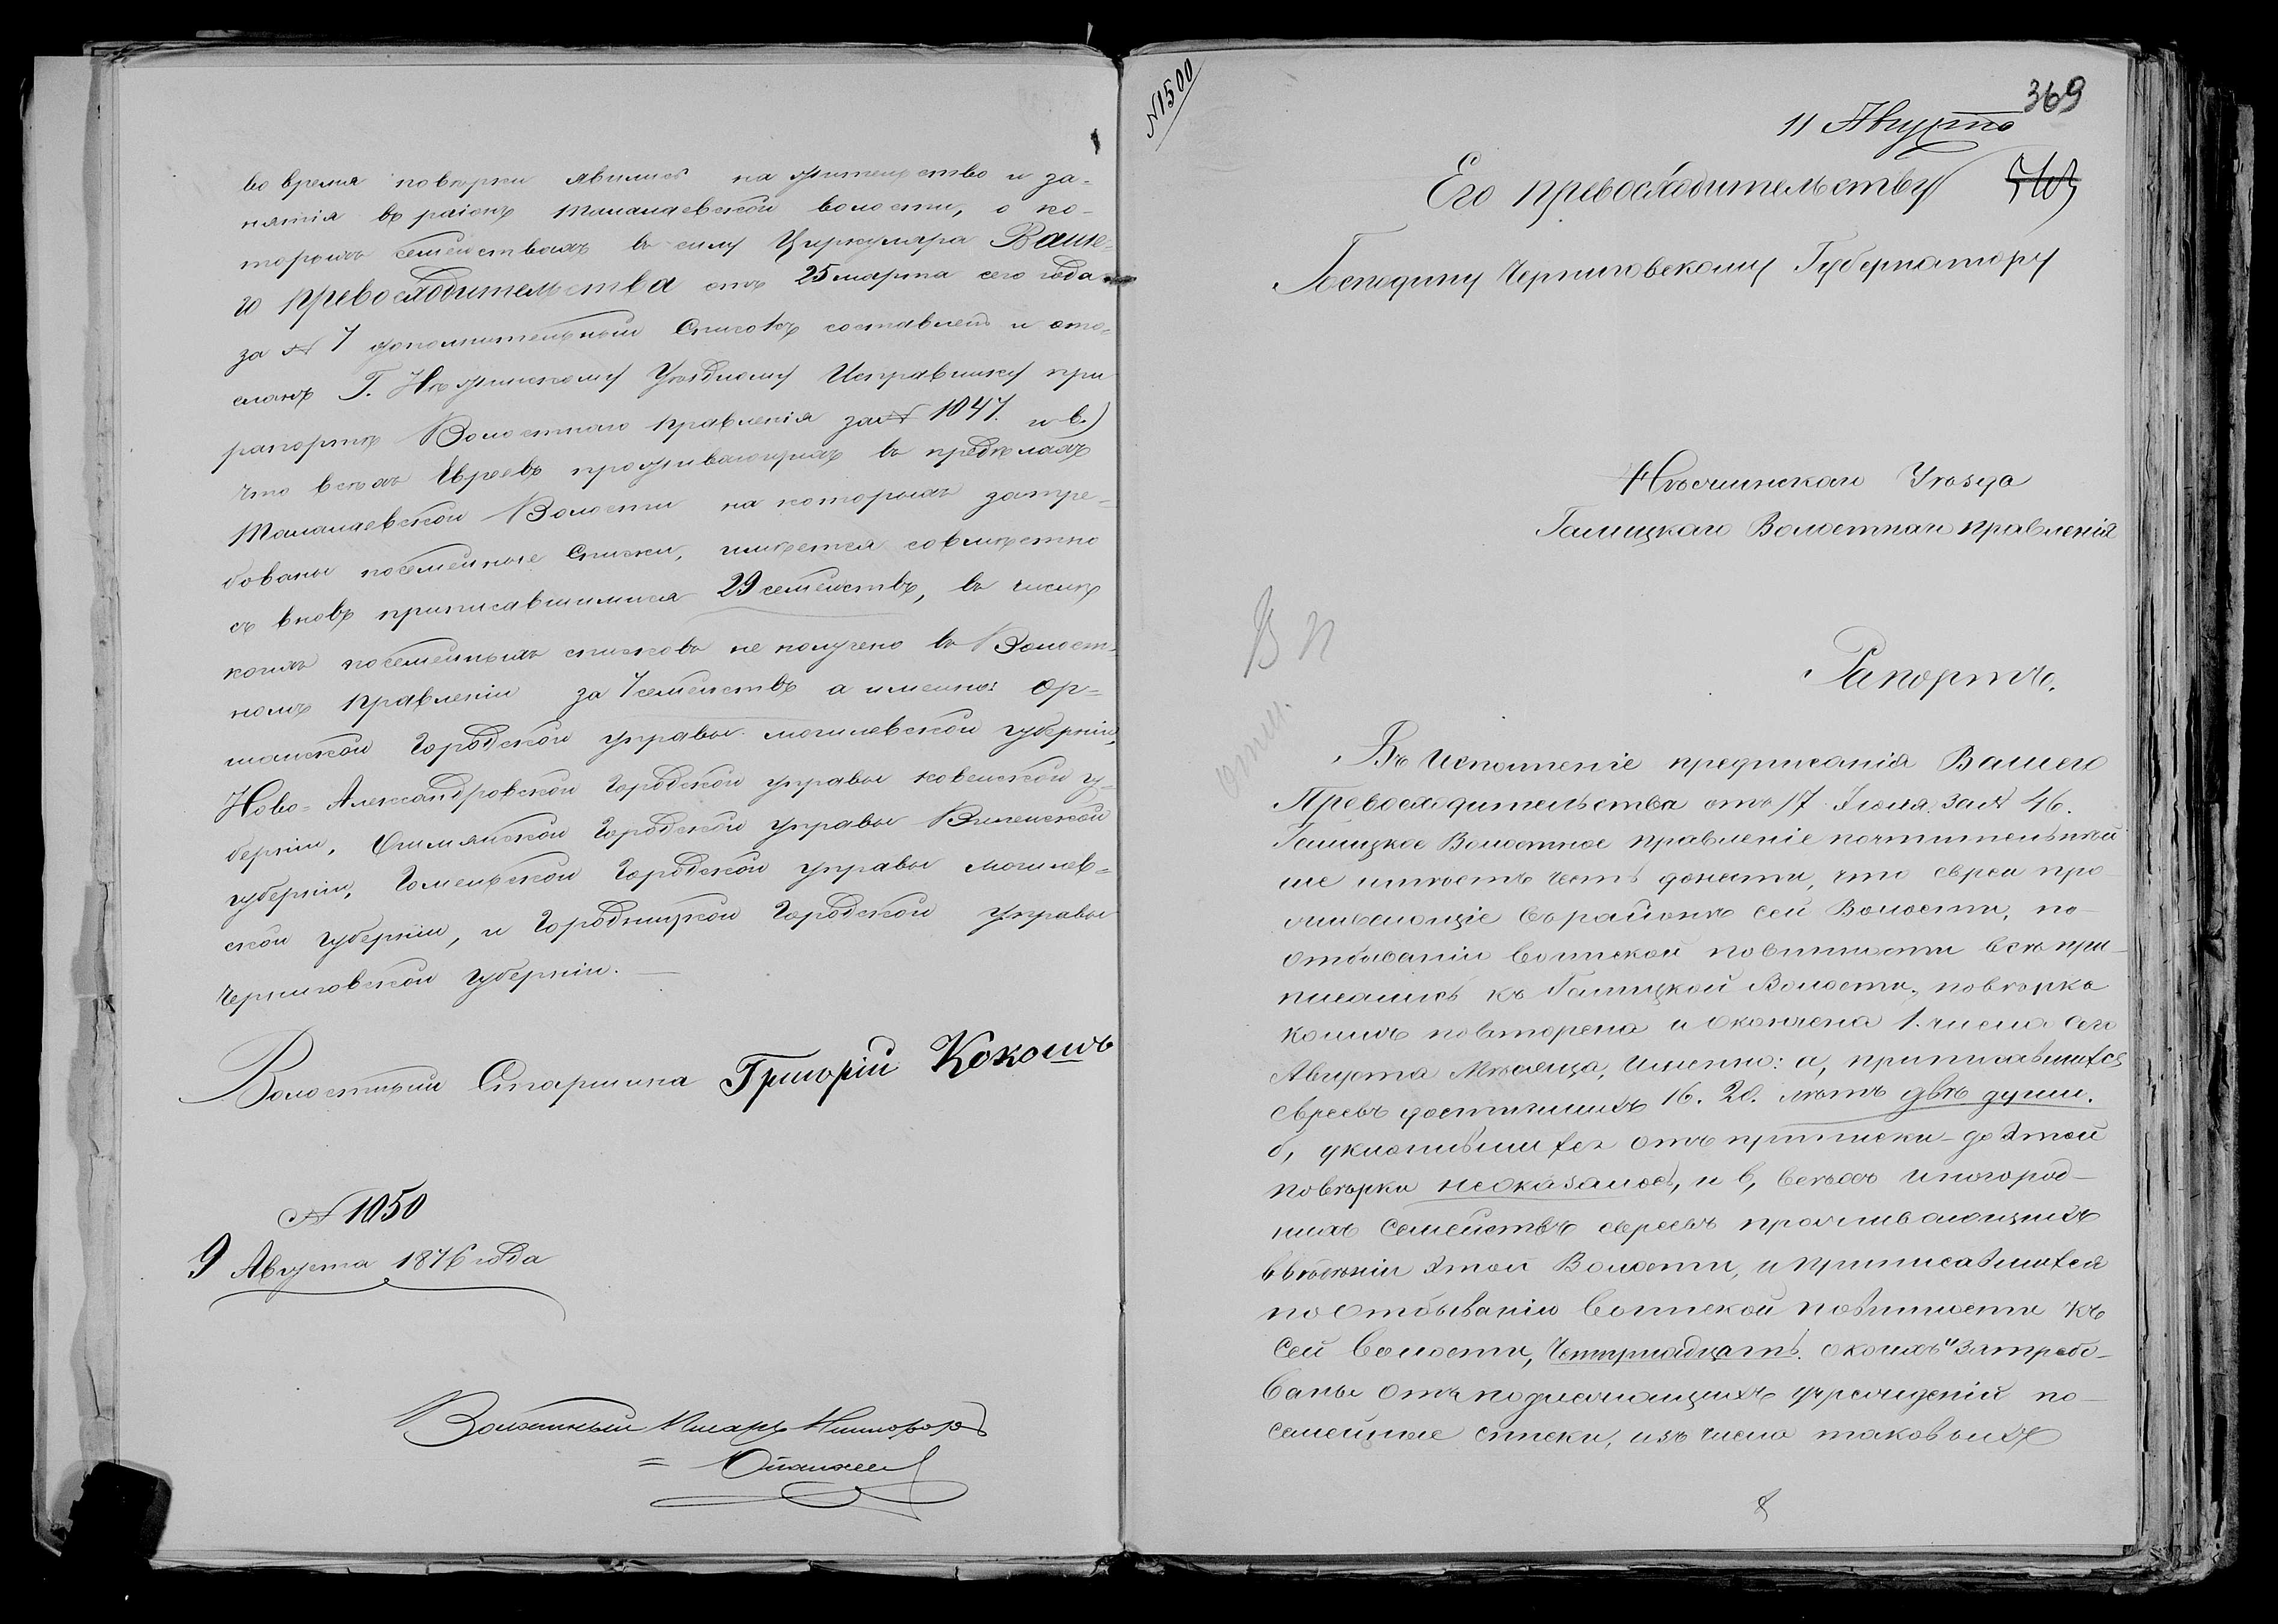 во время поверки явились на жительство и за-
нятія въ раіонѣ Талалаевской волости, о ко-
торыхъ семействахъ въ силу Циркуляра Ваше-
го Превосходительства отъ 25 марта сего года
за № 7 дополнительный списокъ составленъ и ото-
сланъ Г. Нѣжинскому Уѣздному Исправнику при
рапортѣ Волостного Правленія за № 1047. и в.)
что всѣхъ Евреевъ проживающихъ въ предѣлахъ
Талалаевской Волости на которыхъ затре-
бованы посемейные списки, имѣется совмѣстно
съ вновь приписавшимися 29 семействъ, въ числѣ
коихъ посемейныхъ списковъ не получено въ Волост-
номъ Правленіи за 7 семействъ а именно: Ор-
шанской Городской управы могилевской губерніи,
Ново-Александровской Городской управы ковенской гу-
берніи, Ошмянской Городской управы Виленской
губерніи, Гомельской Городской управы могилев-
ской губерніи, и Городницкой Городской управы
Черниговской губерніи.
Волостный Старшина Григорій Кокошъ
№ 1050
9 Августа 1876 года
Волостный Писарь
№ 1500
369
11 Августа
Его Превосходительству
Господину Черниговскому Губернатору
Нѣжинскаго Уѣзда
Галицкаго Волостнаго Правленія
Рапортъ.
Въ исполненіе предписанія Вашего
Превосходительства отъ 17 Іюня за № 46.
Галицкое Волостное Правленіе почтительнѣй
ше имѣетъ честь донести, что евреи про
живающіе въ районѣ сей Волости, по-
отбыванію воинской повинности всѣ при-
писались къ Галицкой Волости, повѣрка
коимъ повторена и окончена 1. числа сего
Августа Мѣсяца, именно: а, приписавшихся
евреевъ достигшихъ 16. 20. лѣтъ двѣ души.
б, уклонившихся отъ приписки до этой
повѣрки неоказалось, и в, всѣхъ иногород-
нихъ семействъ евреевъ проживающихъ
ввѣдѣніи этой Волости, и приписавшихся
по отбыванію воинской повинности къ
сей волости, Четырнадцать. о коихъ и затребо-
ваны отъ подлежащихъ учрежденій по-
семейные списки, изъ числа таковыхъ